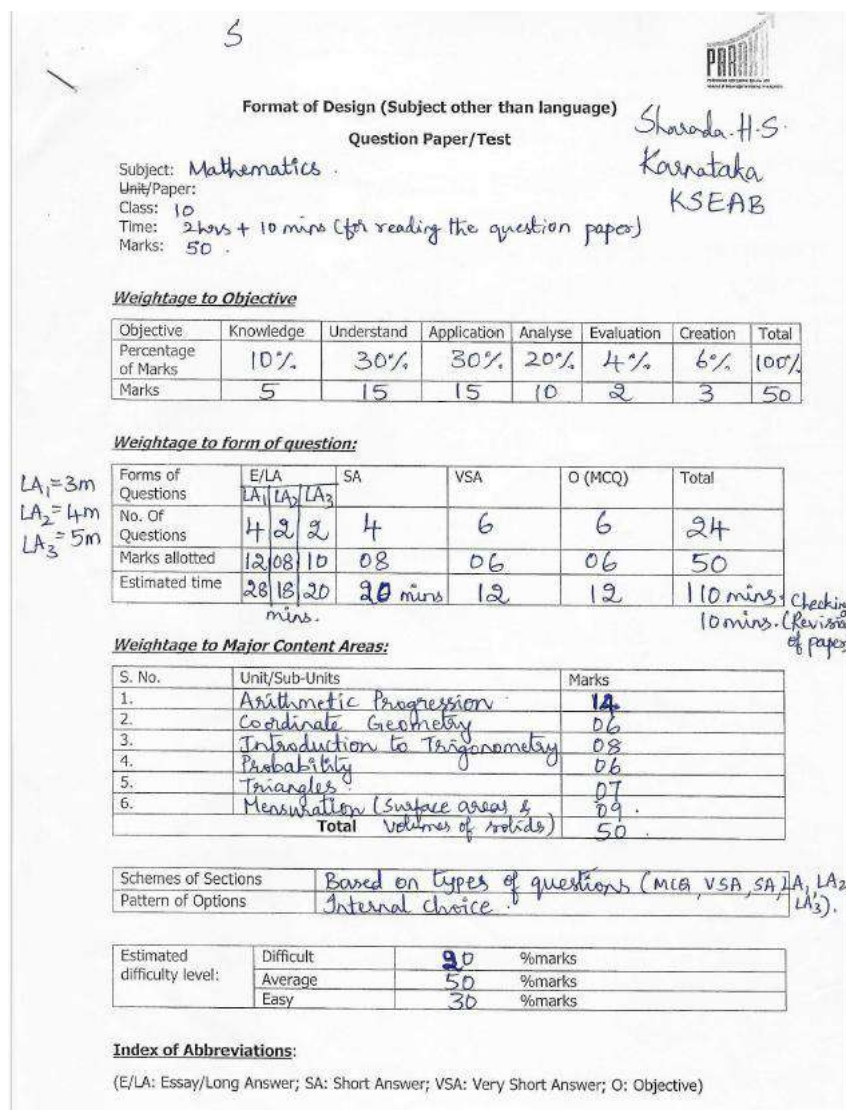 5
PARAKH
Format of Design (Subject other than language)
Question Paper/Test
Sharada.H.S.
Karnataka
KSEAB
Subject: Mathematics.
Unit/Paper:
Class: 10
Time: 2hrs + 10 mins (for reading the question paper)
Marks: 50.
Weightage to Objective
Objective Knowledge Understand Application Analyse Evaluation Creation Total
Percentage of Marks 10% 30% 30% 20% 4% 6% 100%
Marks 5 15 15 10 2 3 50
Weightage to form of question:
LA1=3m
LA2=4m
LA3=5m
Forms of Questions E/LA SA VSA O (MCQ) Total
LA1 LA2 LA3
No. Of Questions 4 2 2 4 6 6 24
Marks allotted 12 08 10 08 06 06 50
Estimated time 28 18 20 20 mins 12 12 110 mins + Checking
mins. 10 mins. (Revision
of paper
Weightage to Major Content Areas:
S. No. Unit/Sub-Units Marks
1. Arithmetic Progression 14
2. Coordinate Geometry 06
3. Introduction to Trigonometry 08
4. Probability 06
5. Triangles. 07
6. Mensuration (Surface areas & 09.
Total volumes of solids) 50.
Schemes of Sections Based on types of questions (MCQ, VSA, SA, LA1, LA2,
Pattern of Options Internal choice. LA3).
Estimated difficulty level: Difficult 20 %marks
Average 50 %marks
Easy 30 %marks
Index of Abbreviations:
(E/LA: Essay/Long Answer; SA: Short Answer; VSA: Very Short Answer; O: Objective)